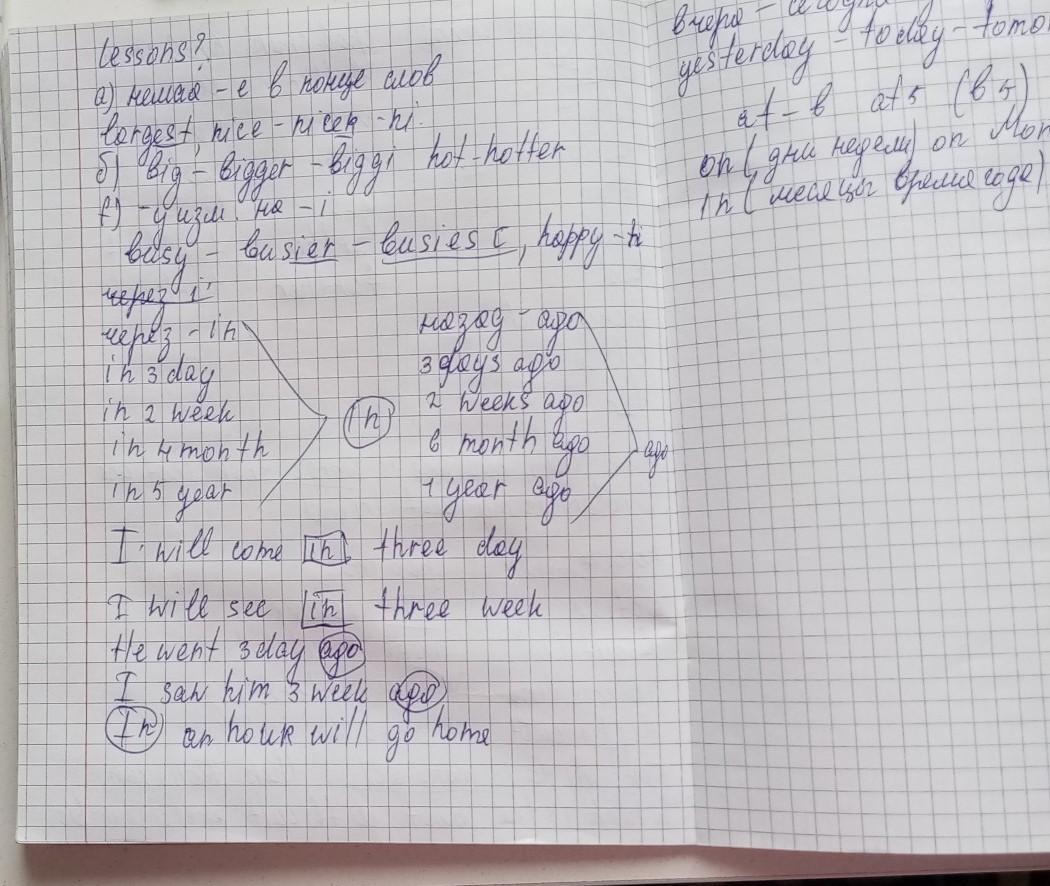 lessons?
а) немая -е в конце слов
largest, nice - nicer - ni.
б) big - bigger - biggi hot-hotter
в) -у изм. на -i
busy - busier - busiest, happy -
через i
через - in
in 3 day
in 2 week
in 4 month
in 5 year
in
назад - ago
3 days ago
2 weeks ago
6 month ago
1 year ago
ago
I will come in three day
I will see in three week
He went 3 day ago
I saw him 3 week ago
In an hour will go home
вчера -
yesterday - today - tomo
at - в at 5 (в 5)
on (дни недели) on Mon
in (месяцы время года)